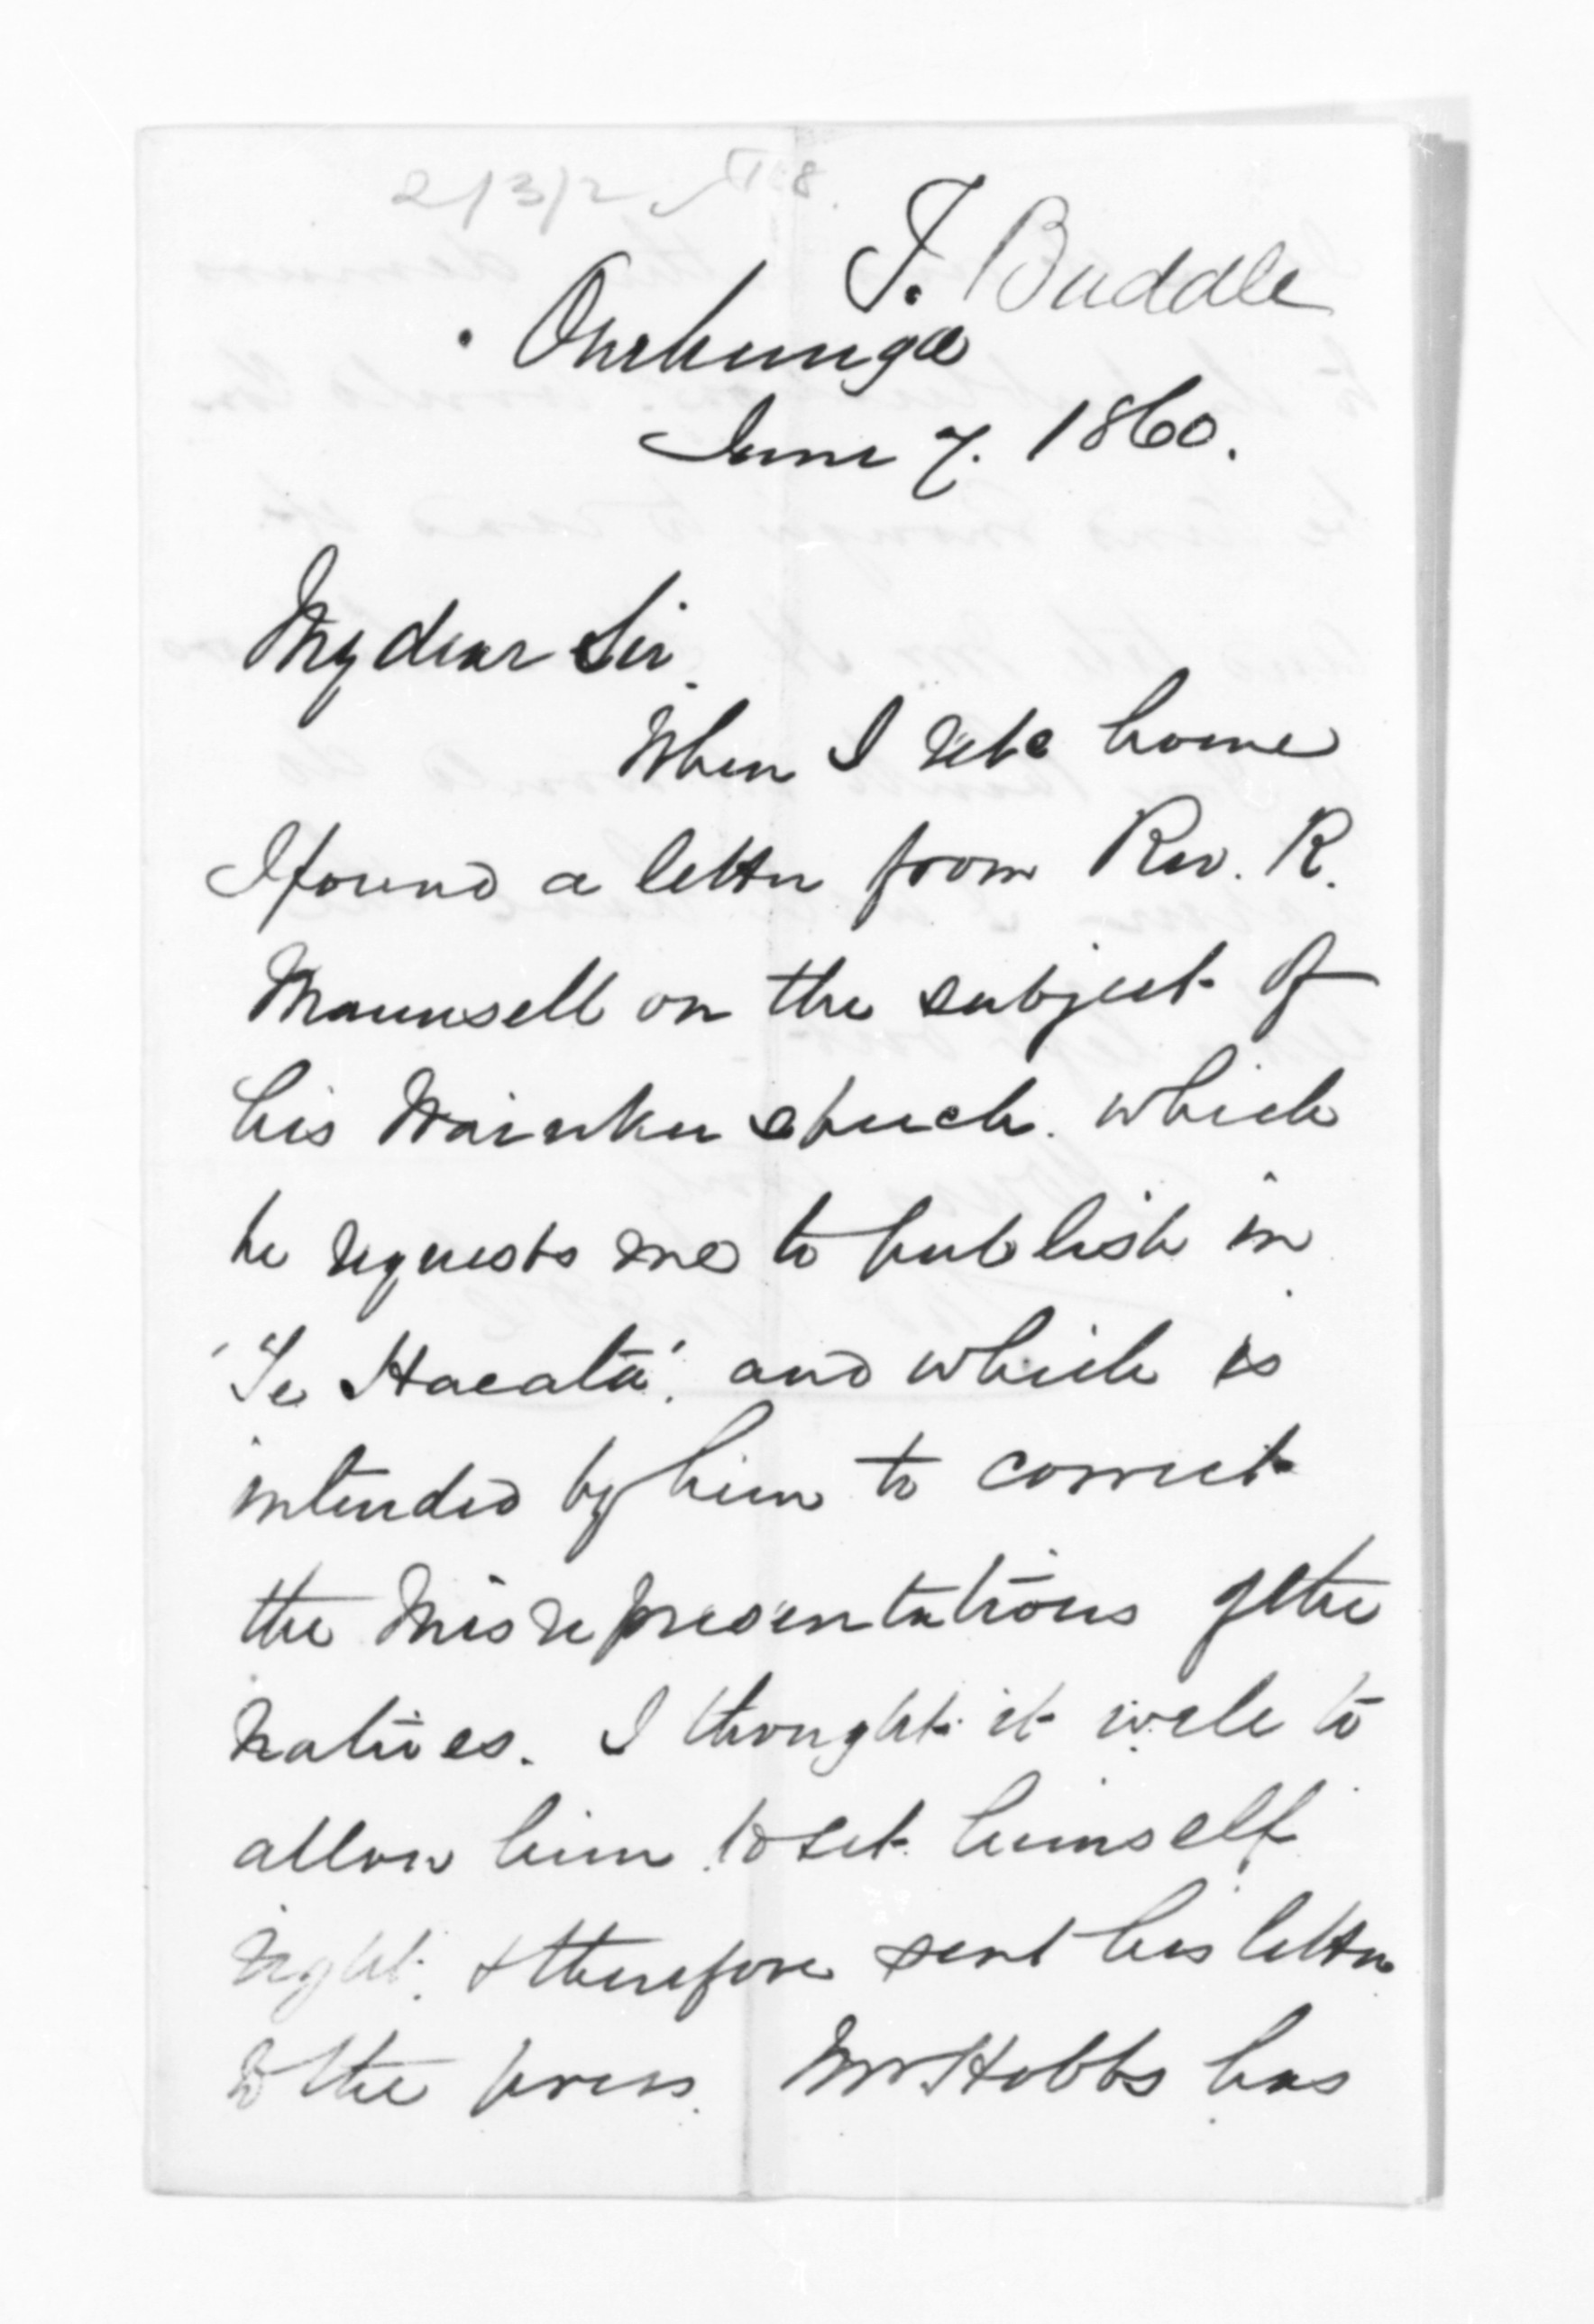 T. Buddle
Onehunga
June 7. 1860.
My dear Sir.
When I rete home
I found a letter from Rev. R.
Maunsell on the subject of
his Waiuku speech. which
he requests me to publish in
'Te Haeata'. and which is
intended by him to correct
the Misrepresentations of the
natives. I thought it well to
allow him to set himself
right. & therefore sent his letter
to the press. Mr Hobbs has